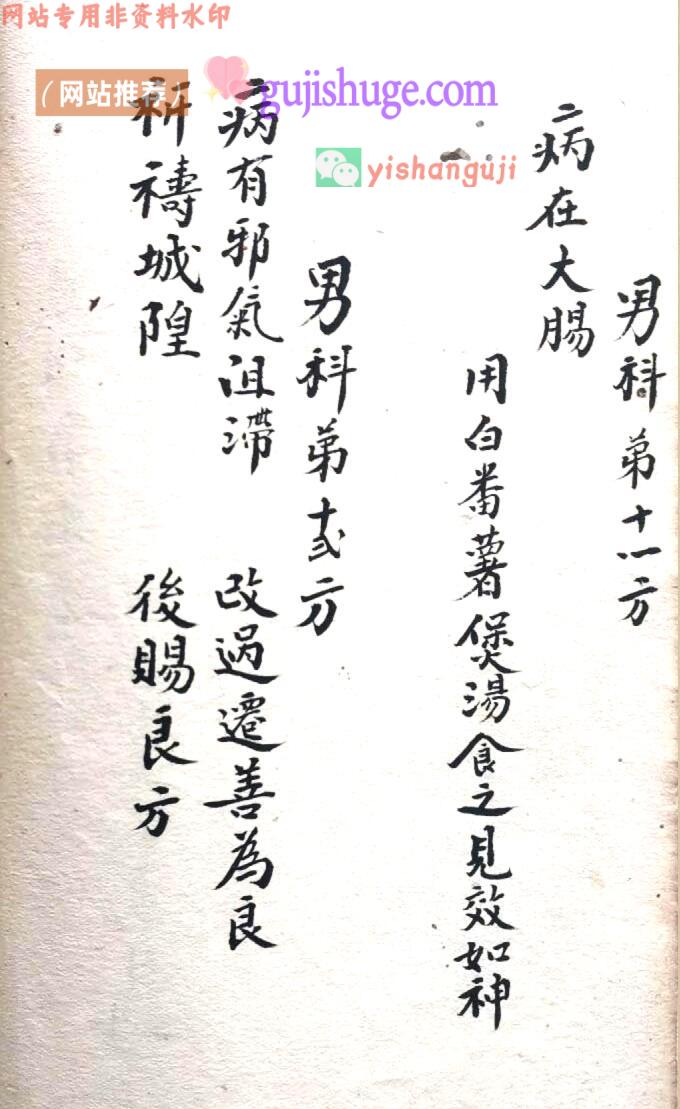 网站专用非资料水印
（网站推荐）
gujishuge.com
yishanguji
男科弟十一方
病在大腸
用白番薯煲湯食之見效如神
男科弟十弍方
病有邪氣沮滯 改過遷善為良
祈禱城隍 後賜良方